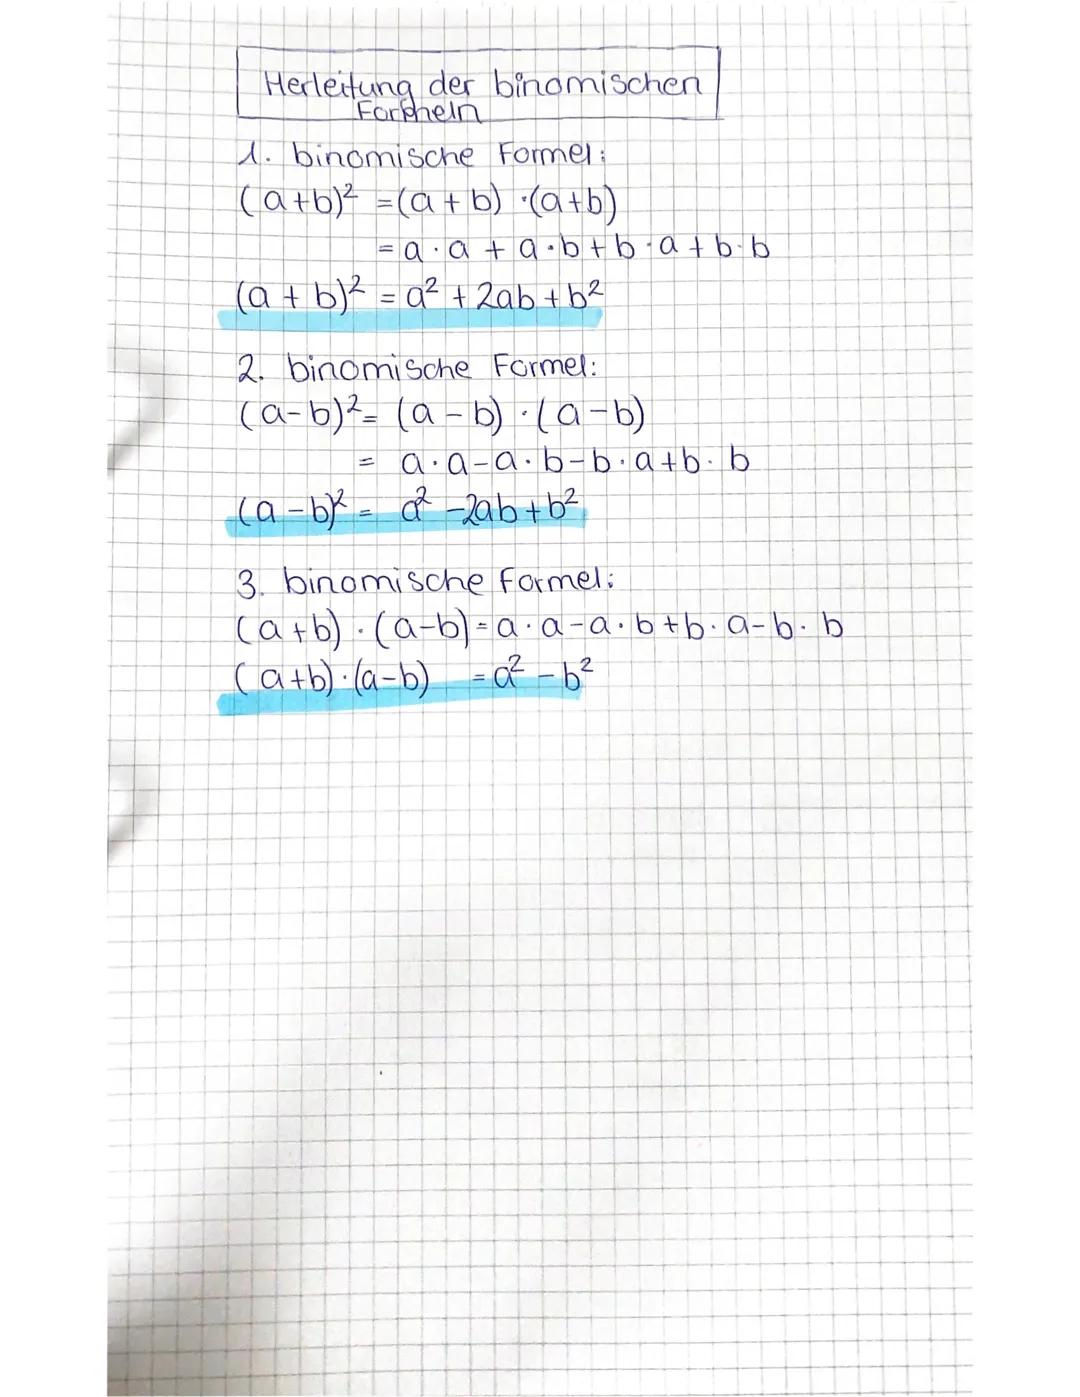 Herleitung der binomischen
Formeln
1. binomische Formel:
(a+b)² = (a+b) · (a+b)
= a · a + a · b + b · a + b · b
(a + b)² = a² + 2ab + b²
2. binomische Formel:
(a-b)² = (a - b) · (a - b)
= a · a - a · b - b · a + b · b
(a - b)² = a² - 2ab + b²
3. binomische Formel:
(a+b) · (a-b) = a · a - a · b + b · a - b · b
(a+b) · (a-b) = a² - b²